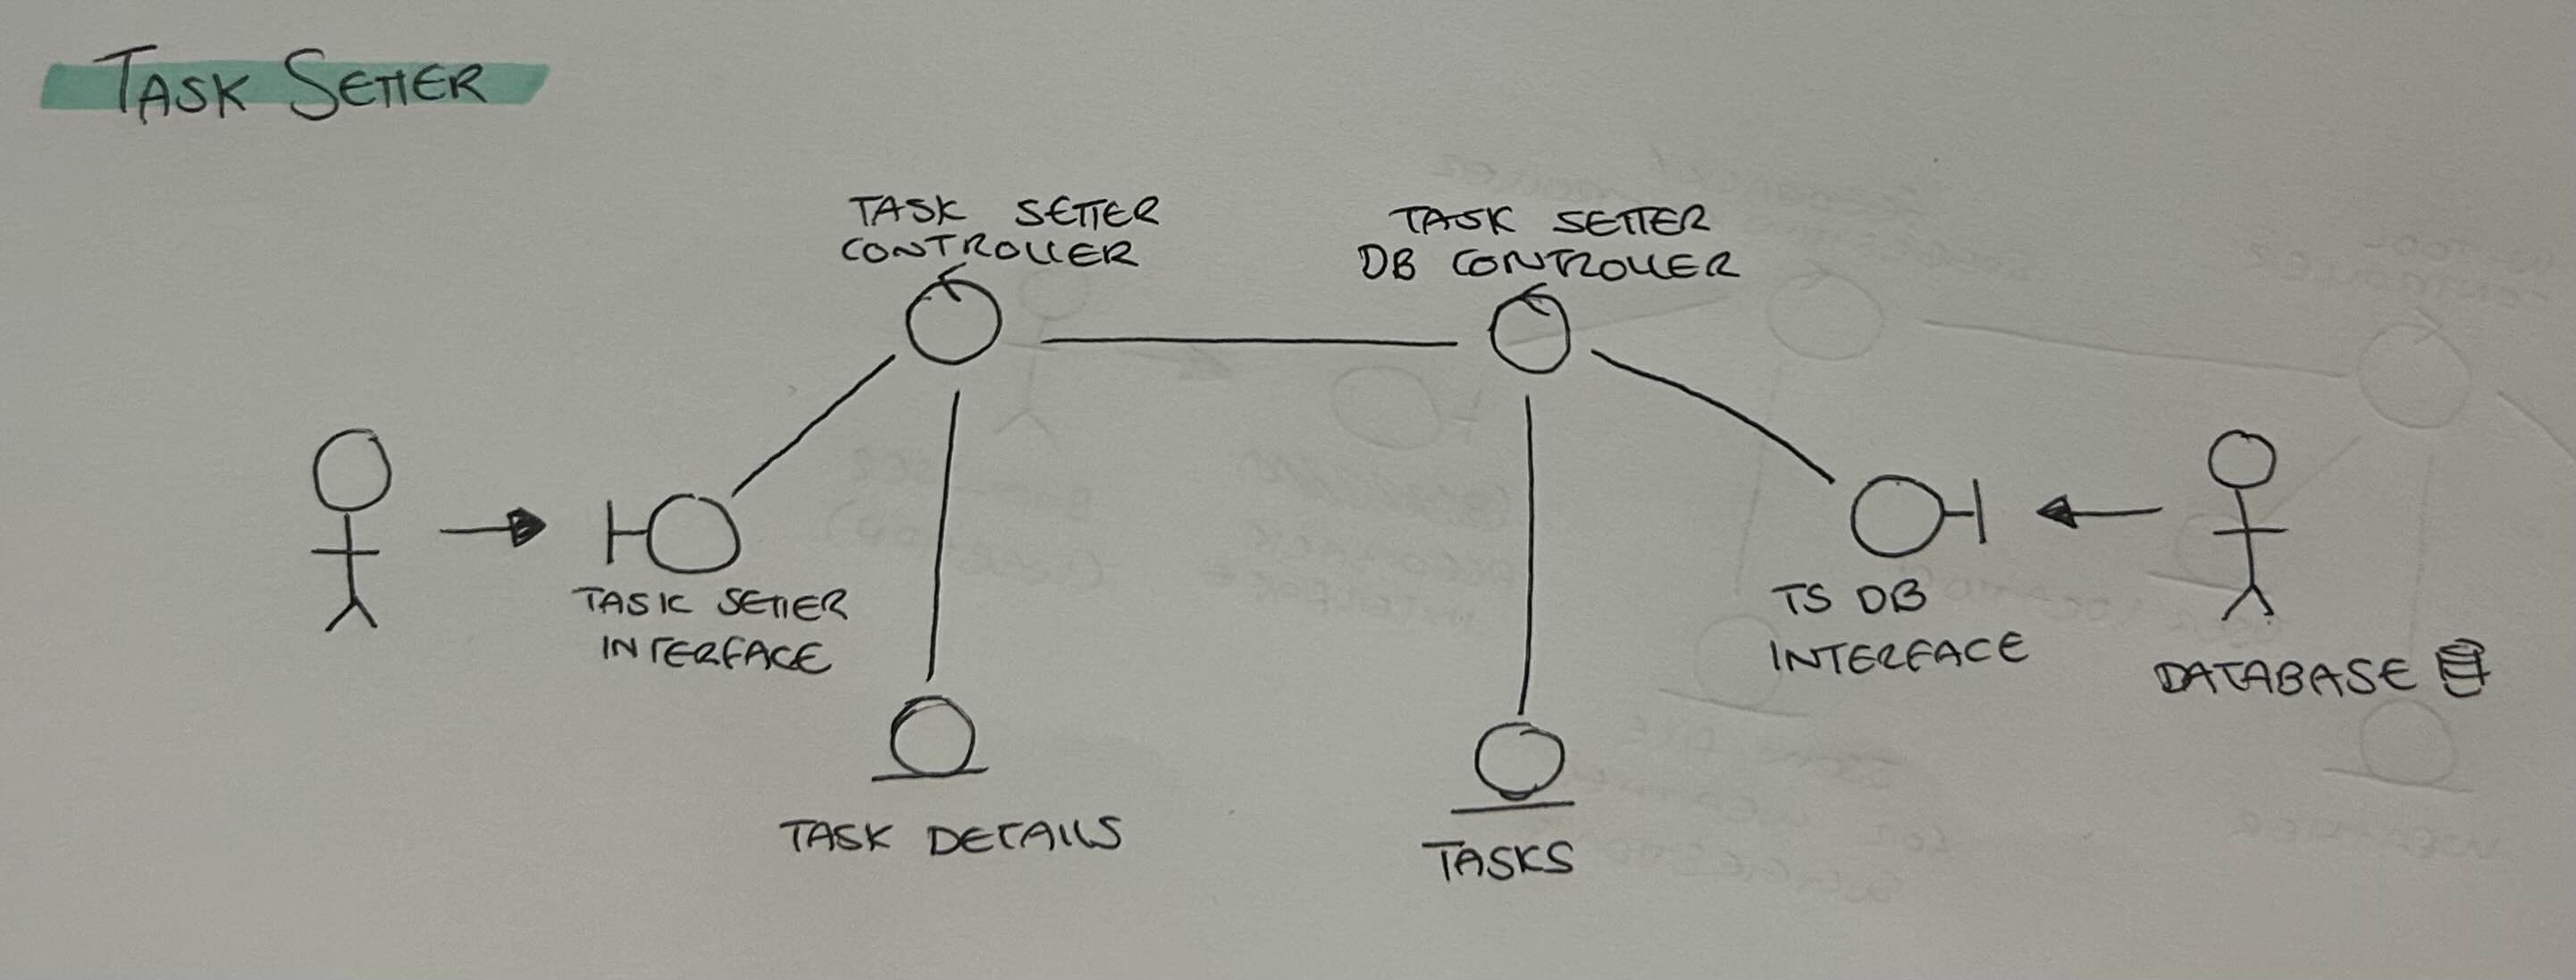 TASK SETTER
TASK SETTER
CONTROLLER
TASK SETTER
DB CONTROLLER
TASK SETTER
INTERFACE
TS DB
INTERFACE
DATABASE
TASK DETAILS
TASKS